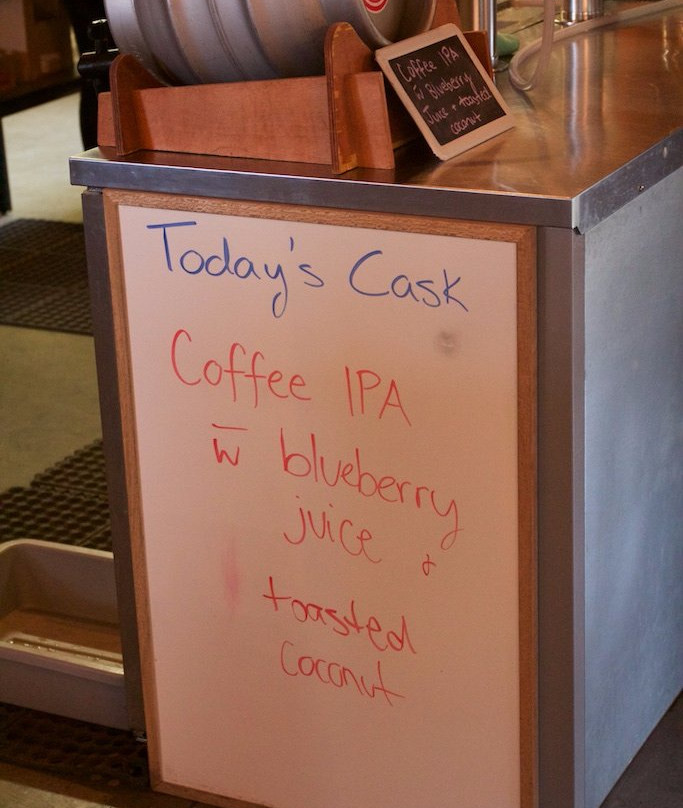 Coffee IPA
w̅ Blueberry
Juice + toasted
coconut
Today's Cask
Coffee IPA
w̅ blueberry
juice &
toasted
coconut